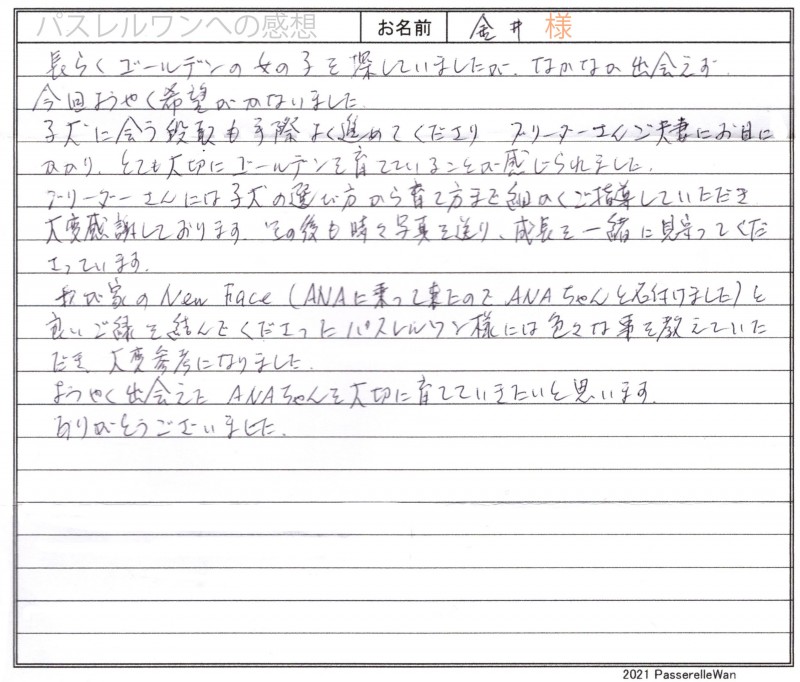 パスレルワンへの感想 お名前 金井 様
長らくゴールデンの女の子を探していましたが、なかなか出会えず
今回ようやく希望がかないました。
子犬に会う段取も手際よく進めてくださり ブリーダーさんご夫妻にお目に
かかり、とても大切にゴールデンを育てていることが感じられました。
ブリーダーさんには子犬の選び方から育て方まで細かくご指導していただき
大変感謝しております。その後も時々写真を送り、成長を一緒に見守ってくだ
さっています。
我が家のNew Face(ANAに乗って来たのでANAちゃんと名付けました)と
良いご縁を結んでくださったパスレルワン様には色々な事を教えていた
だき 大変参考になりました。
ようやく出会えたANAちゃんを大切に育てていきたいと思います。
ありがとうございました。
2021 PasserelleWan